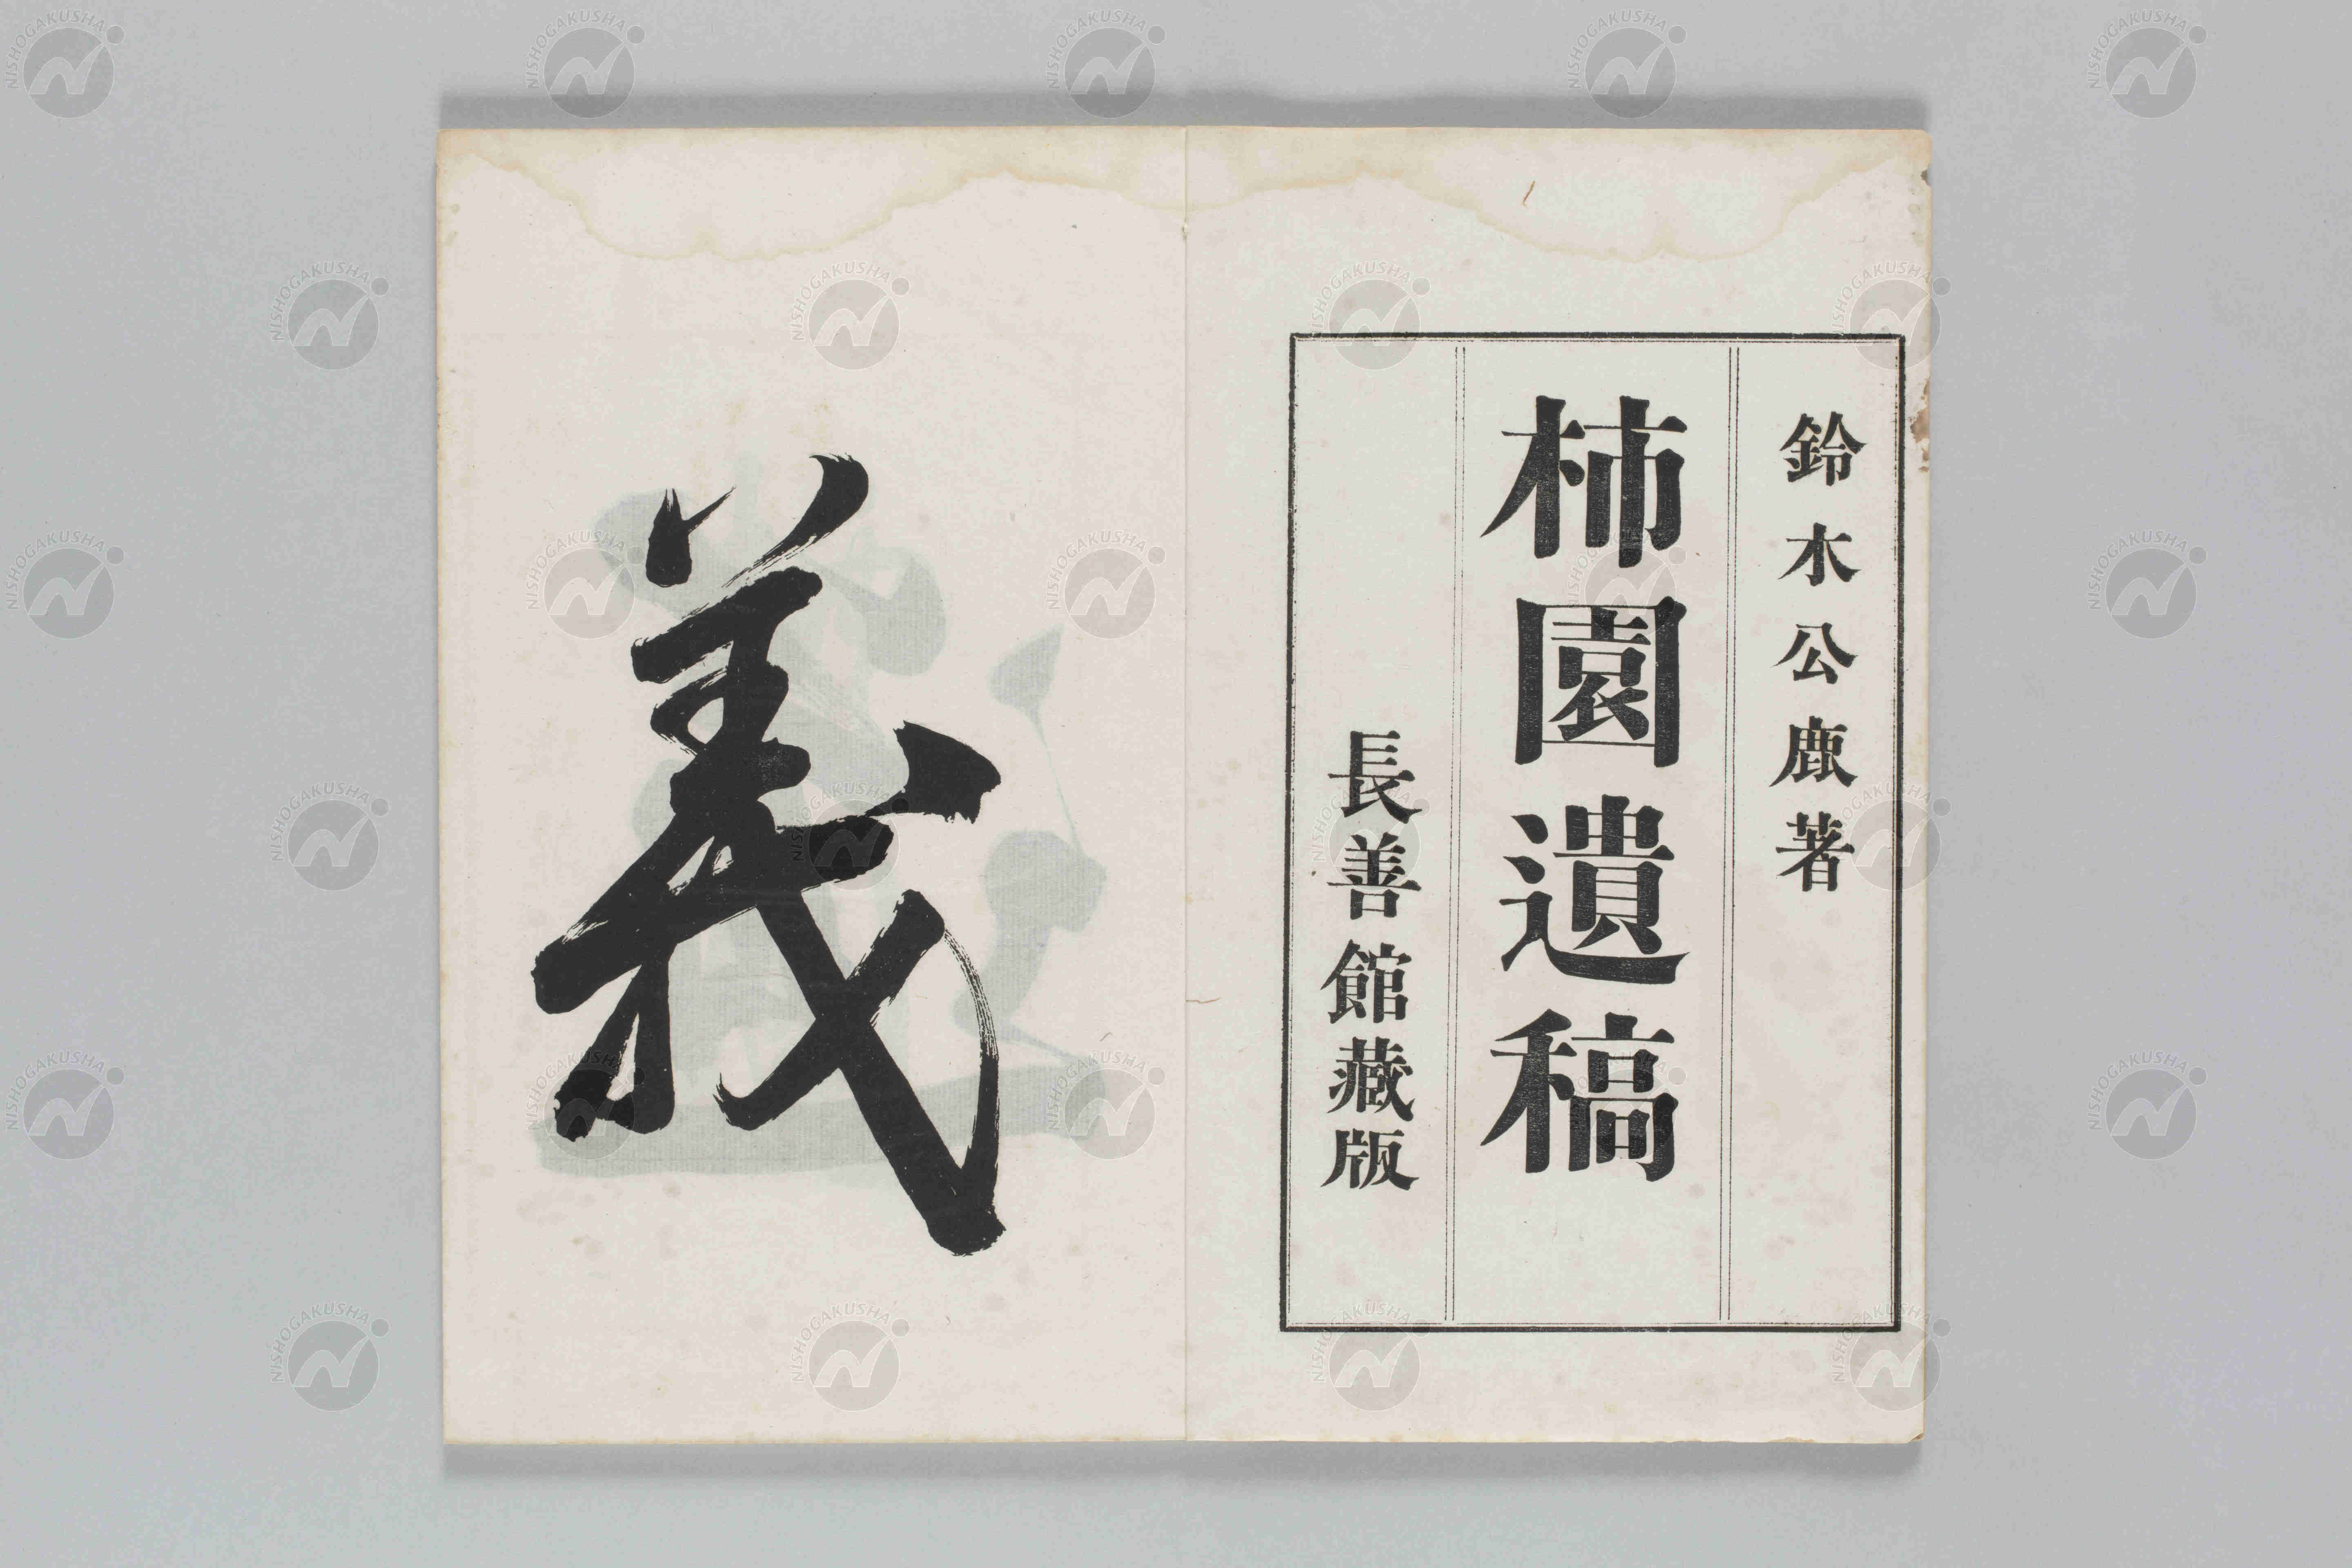 鈴木公鹿著
柿園遺稿
長善館藏版
義
NISHOGAKUSHA